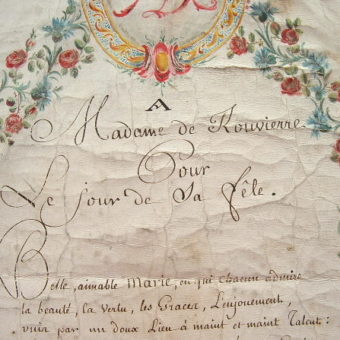 A
Madame de Rouvierre.
Pour
Le jour de Sa fête.
Belle, aimable Marie, en qui chacun admire
la beauté, la vertu, les Graces, L'enjouement,
unir par un doux Lien à maint et maint Talent: